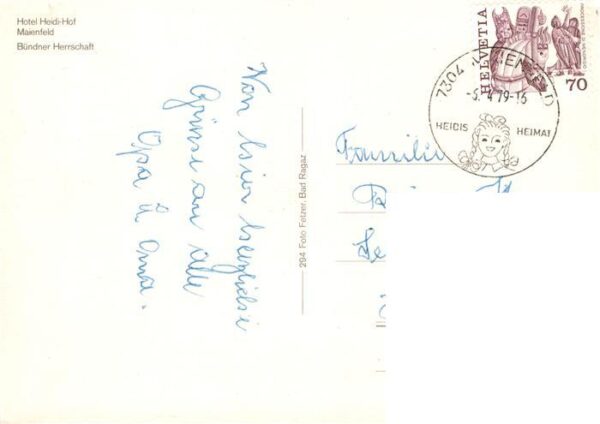 Hotel Heidi-Hof
Maienfeld
Bündner Herrschaft
Von hier herzliche
Grüsse an alle
Opa u. Oma.
294 Foto Fetzer, Bad Ragaz
HELVETIA
70
7304 MAIENFELD
-5. 4.79-16
HEIDIS HEIMAT
Familie